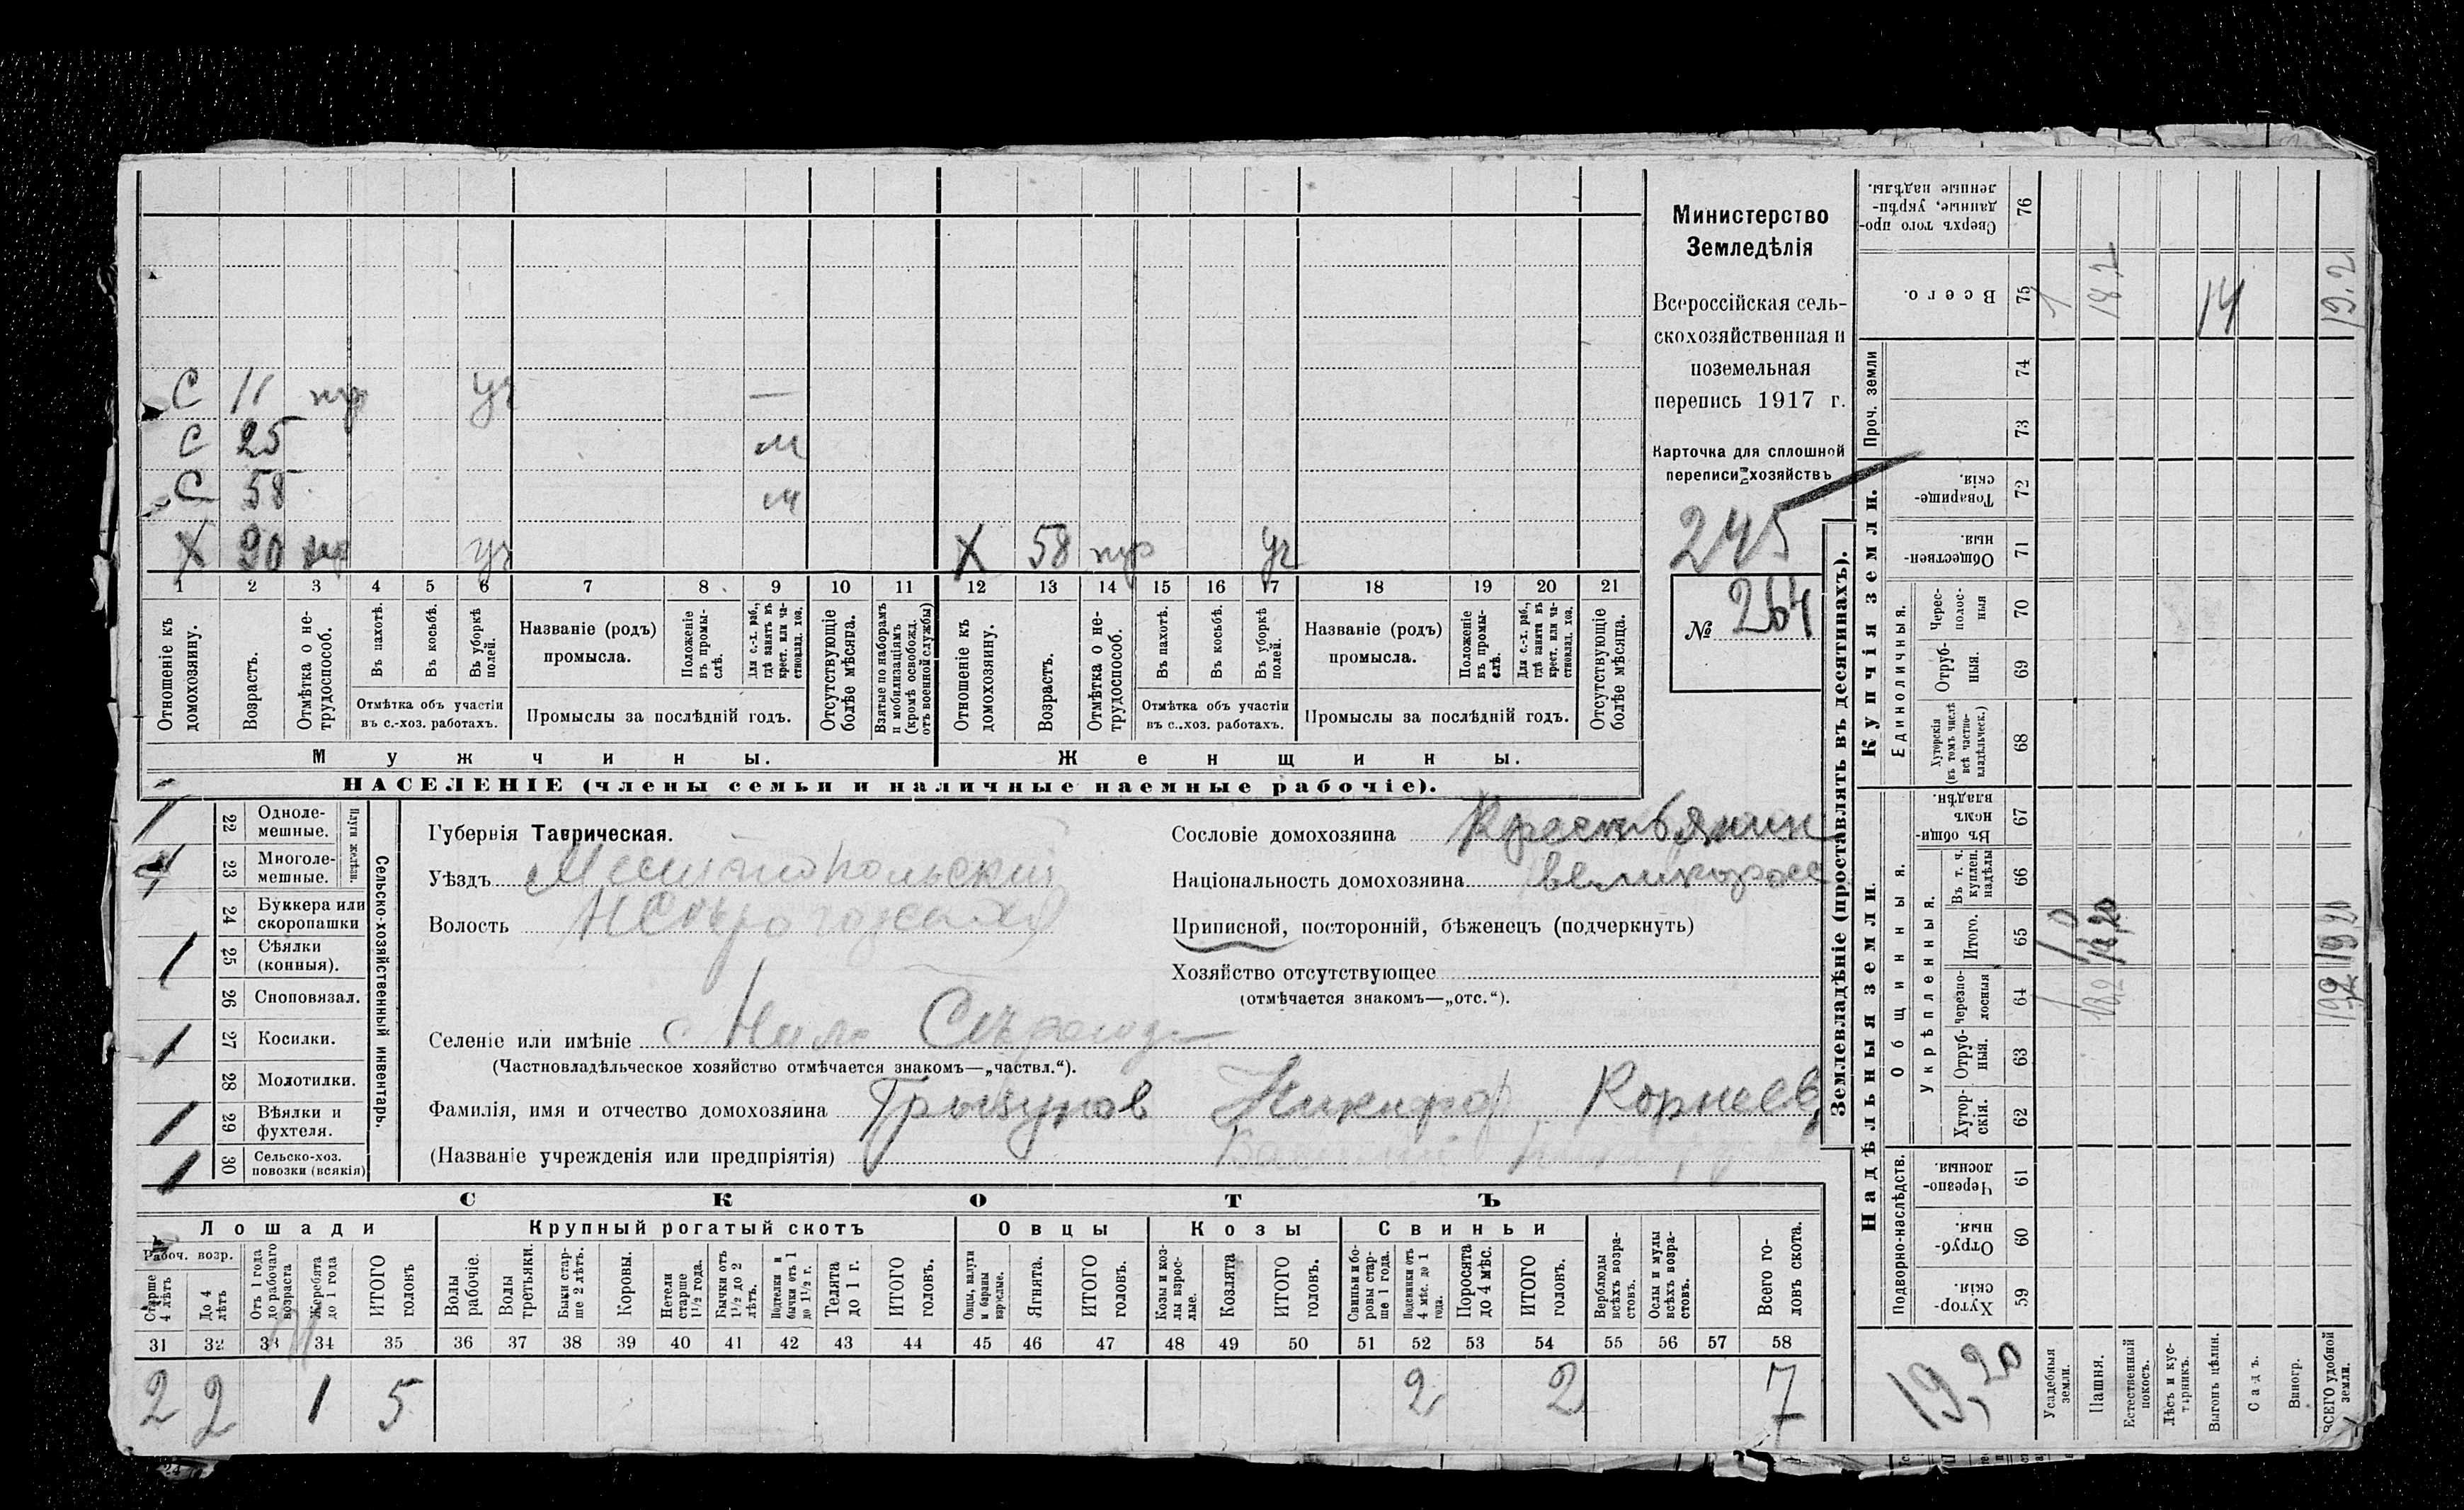 Министерство
Земледѣлія
Всероссійская сель-
скохозяйственная и
поземельная
перепись 1917 г.
Карточка для сплошной
переписи хозяйствъ
245
№ 264
С 11 нр уч —
С 25 м
С 58 м
Х 90 нр уч Х 58 нр уч
1 2 3 4 5 6 7 8 9 10 11 12 13 14 15 16 17 18 19 20 21
Отношеніе къ домохозяину.
Возрастъ.
Отмѣтка о не-трудоспособ.
Въ пахотѣ.
Въ косьбѣ.
Въ уборкѣ полей.
Отмѣтка объ участіи
въ с.-хоз. работахъ.
Названіе (родъ)
промысла.
Положеніе въ промы-слѣ.
Для с.-х. раб., гдѣ занятъ въ крест. или ча-стновлад. хоз.
Промыслы за послѣдній годъ.
Отсутствующіе болѣе мѣсяца.
Взятые по наборамъ и мобилизаціямъ (кромѣ освобожд. отъ военной службы)
Отношеніе къ домохозяину.
Возрастъ.
Отмѣтка о не-трудоспособ.
Въ пахотѣ.
Въ косьбѣ.
Въ уборкѣ полей.
Отмѣтка объ участіи
въ с.-хоз. работахъ.
Названіе (родъ)
промысла.
Положеніе въ промы-слѣ.
Для с.-х. раб., гдѣ занята въ крест. или ча-стновлад. хоз.
Промыслы за послѣдній годъ.
Отсутствующіе болѣе мѣсяца.
Мужчины. Женщины.
НАСЕЛЕНІЕ (члены семьи и наличные наемные рабочіе).
Сельско-хозяйственный инвентарь.
Плуги желѣзн.
22 Одноле-мешные.
23 Многоле-мешные.
24 Буккера или скоропашки
25 Сѣялки (конныя).
26 Сноповязал.
27 Косилки.
28 Молотилки.
29 Вѣялки и фухтеля.
30 Сельско-хоз. повозки (всякія)
Губернія Таврическая.
Уѣздъ Мелитопольскій
Волость
Селеніе или имѣніе с Ниж Сѣрогозы
(Частновладѣльческое хозяйство отмѣчается знакомъ—„частвл.“).
Фамилія, имя и отчество домохозяина Грызунов Никифор Корнеев
(Названіе учрежденія или предпріятія)
Сословіе домохозяина Крестьянин
Національность домохозяина великорос
Приписной, посторонній, бѣженецъ (подчеркнуть)
Хозяйство отсутствующее
(отмѣчается знакомъ—„отс.“).
СКОТЪ
Лошади Крупный рогатый скотъ Овцы Козы Свиньи
Рабоч. возр.
Старше 4 лѣтъ
До 4 лѣтъ
Отъ 1 года до рабочаго возраста
Жеребята до 1 года
ИТОГО головъ
Волы рабочіе.
Волы третьяки.
Быки стар-ше 2 лѣтъ.
Коровы.
Нетели старше 1½ года.
Бычки отъ 1½ до 2 лѣтъ.
Подтелки и бычки отъ 1 до 1½ г.
Телята до 1 г.
ИТОГО головъ.
Овцы, валухи и бараны взрослые.
Ягнята.
ИТОГО головъ.
Козы и коз-лы взрос-лые.
Козлята
ИТОГО головъ.
Свиньи и бо-ровы стар-ше 1 года.
Подсвинки отъ 4 мѣс. до 1 года.
Поросята до 4 мѣс.
ИТОГО головъ.
Верблюды всѣхъ возра-стовъ.
Ослы и мулы всѣхъ возра-стовъ.
Всего го-ловъ скота.
31 32 33 34 35 36 37 38 39 40 41 42 43 44 45 46 47 48 49 50 51 52 53 54 55 56 57 58
2 2 1 5 2 2 7
Землевладѣніе (проставлять въ десятинахъ).
Надѣльныя земли. Купчія земли. Проч. земли
Подворно-наслѣдств.
Общинныя.
Укрѣпленныя.
Единоличныя.
59 Хутор-скія.
60 Отруб-ныя.
61 Черезпо-лосныя.
62 Хутор-скія.
63 Отруб-ныя.
64 Черезпо-лосныя
65 Итого.
66 Въ т. ч. куплен. надѣлы
67 Въ общи-номъ владѣн.
68 Хуторскія (въ томъ числѣ всѣ частно-владѣльческ.)
69 Отруб-ныя.
70 Черес-полос-ныя
71 Обществен-ныя.
72 Товарище-скія.
73
74
75 Всего.
76 Сверхъ того про-данные, укрѣп-ленные надѣлы.
19,20
Усадебныя земли.
Пашня. 18,2 18,20 182
Естественный покосъ.
Лѣсъ и кус-тарникъ.
Выгонъ цѣлин. 14
Садъ.
Виногр.
ВСЕГО удобной земли. 19,2 19,20 19.2